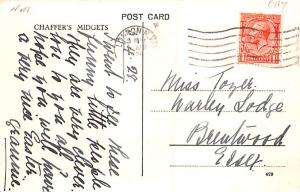 A.M
CHAFFER'S MIDGETS
POST CARD
Went to see these
funny little people
They are very clever
love to you all
hope you will have
a very nice Easter
Miss Toyer,
Warley Lodge
Brentwood
Essex
479